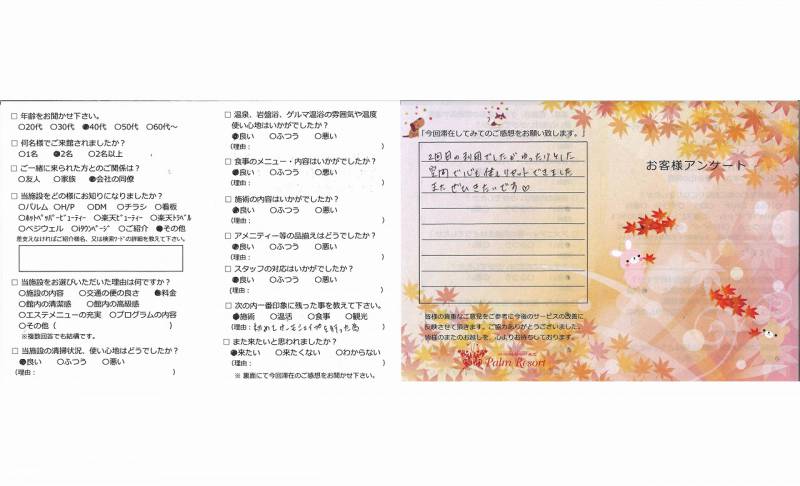 □ 年齢をお聞かせ下さい。
○20代 ○30代 ●40代 ○50代 ○60代～
□ 何名様でご来館されましたか？
○1名 ●2名 ○2名以上
□ ご一緒に来られた方とのご関係は？
○友人 ○家族 ●会社の同僚
□ 当施設をどの様にお知りになりましたか？
○パルム ○H/P ○DM ○チラシ ○看板
○ホットペッパービューティー ○楽天ビューティー ○楽天トラベル
○ベジウェル ○iタウンページ ○ご紹介 ●その他
差支えなければご紹介様名、又は検索ワードの詳細を教えて下さい。
□ 当施設をお選びいただいた理由は何ですか？
○施設の内容 ○交通の便の良さ ●料金
○館内の清潔感 ○館内の高級感
○エステメニューの充実 ○プログラムの内容
○その他 ( )
※複数回答でも結構です。
□ 当施設の清掃状況、使い心地はどうでしたか？
●良い ○ふつう ○悪い
(理由： )
□ 温泉、岩盤浴、ゲルマ温浴の雰囲気や温度
使い心地はいかがでしたか？
●良い ○ふつう ○悪い
(理由： )
□ 食事のメニュー・内容はいかがでしたか？
●良い ○ふつう ○悪い
(理由： )
□ 施術の内容はいかがでしたか？
●良い ○ふつう ○悪い
(理由：
□ アメニティー等の品揃えはどうでしたか？
●良い ○ふつう ○悪い
(理由： )
□ スタッフの対応はいかがでしたか？
●良い ○ふつう ○悪い
(理由： )
□ 次の内一番印象に残った事を教えて下さい。
●施術 ○温活 ○食事 ○観光
(理由： )
□ また来たいと思われましたか？
●来たい ○来たくない ○わからない
(理由： )
※ 裏面にて今回滞在のご感想をお聞かせ下さい。
「今回滞在してみてのご感想をお願い致します。」
2回目の利用でしたがゆったりとした
空間で心も体もリセットできました
またぜひきたいです♡
皆様の貴重なご意見をご参考に今後のサービスの改善に
反映させて頂きます。ご協力ありがとうございました。
皆様のまたのお越しを、心よりお待ちしております。
Palm Resort
お客様アンケート